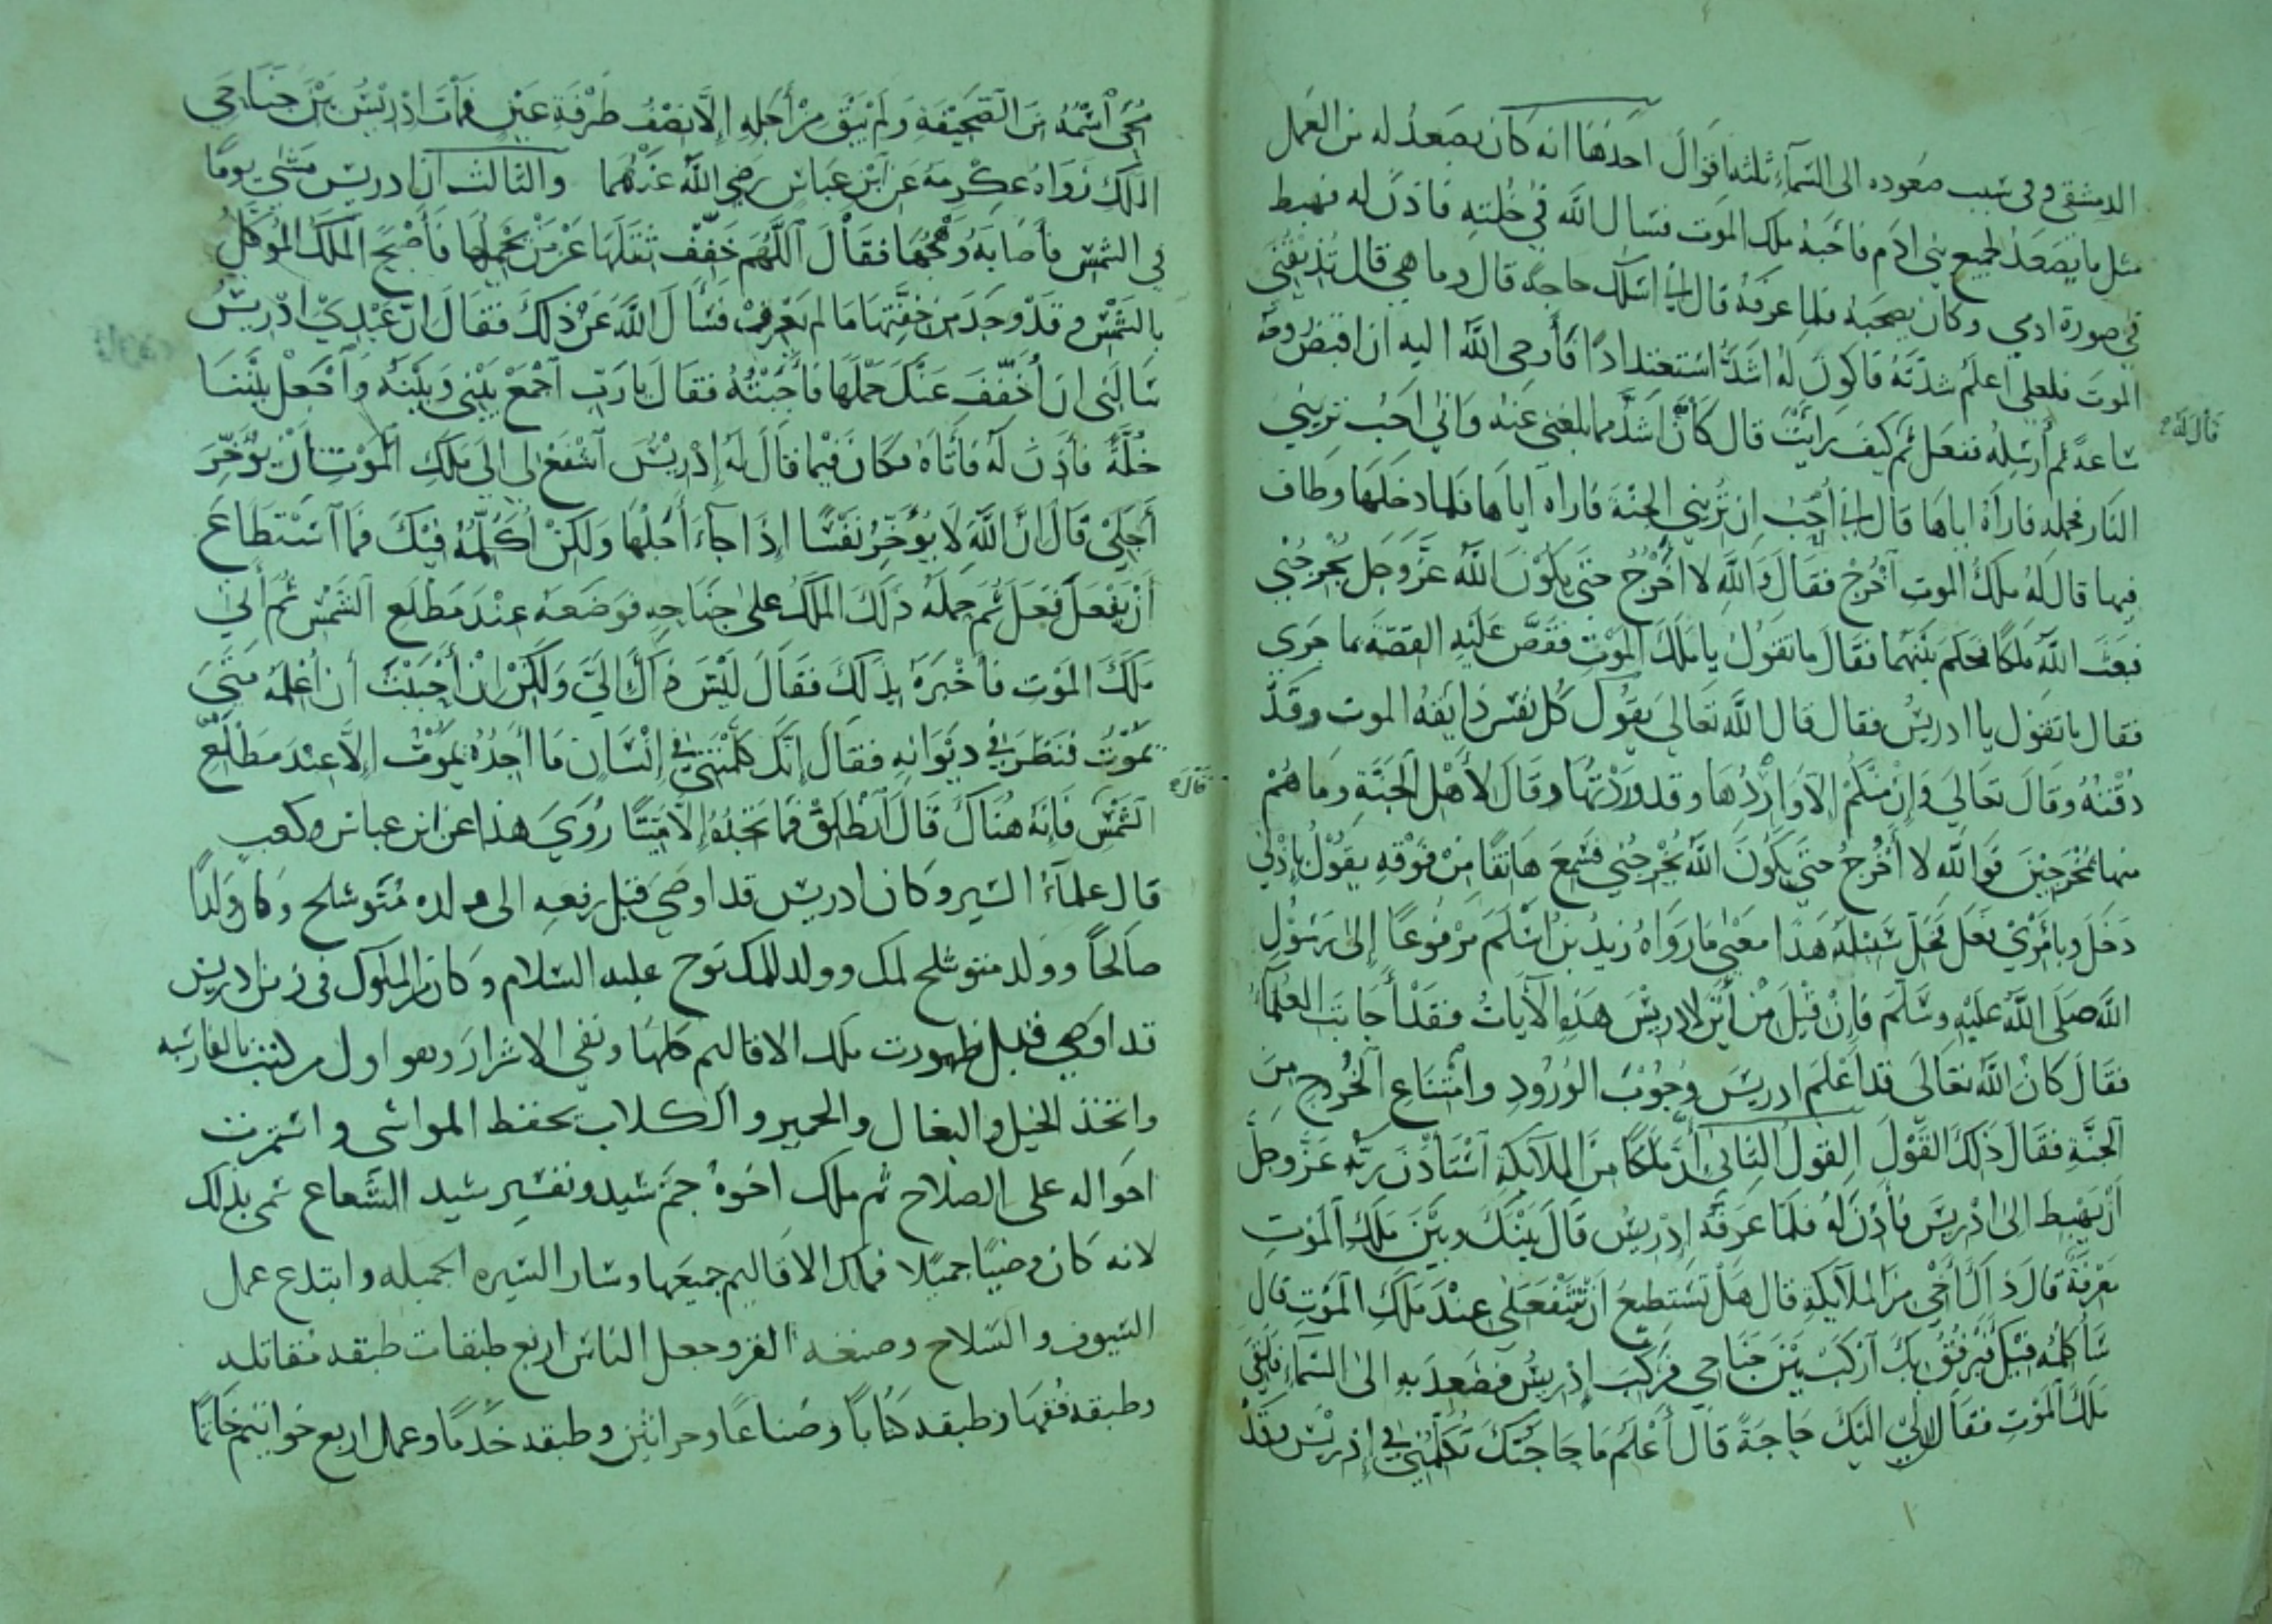 الدمشقي وفي سبب صعوده الى السماء ثلثة اقوال احدها انه كان يصعد له من العمل
مثل ما يصعد لجميع بني ادم فاحبه ملك الموت فسال الله في خلته فاذن له فهبط
في صورة ادمي وكان يصحبه فلما عرفه قال اني اسلك حاجة قال وما هي قال تذيقني
الموت فلعلي اعلم شدته فاكون له اشد استعدادا فأوحى الله اليه ان اقبض روحه
ساعة ثم أرسله ففعل ثم كيف رايت قال كان اشد مما بلغني عنه واني احب تريني
قال له
النار فحمله فاراه اياها قال اني أحب ان تريني الجنة فاراه اياها فلما دخلها وطاف
فيها قال له ملك الموت اخرج فقال والله لا أخرج حتى يكون الله عز وجل يخرجني
فبعث الله ملكا فحكم بينهما فقال ما تقول يا ملك الموت فقص عليه القصة بما جرى
فقال ما تقول يا ادريس فقال قال الله تعالى يقول كل نفس ذايقة الموت وقد
ذقته وقال تعالى وإن منكم إلا واردها وقد وردتها وقال لأهل الجنة وما هم
منها بمخرجين فوالله لا أخرج حتى يكون الله يخرجني فسمع هاتفا من فوقه يقول بإذني
دخل وبأمري فعل فخل سبيله هذا معنى ما رواه زيد بن اسلم مرفوعا إلى رسول
الله صلى الله عليه وسلم فإن قيل من أين لإدريس هذه الآيات فقد أجاب العلماء
فقال كان الله تعالى قد أعلم ادريس وجوب الورود وامتناع الخروج من
الجنة فقال ذلك القول القول الثاني أن ملكا من الملايكة استأذن ربه عز وجل
أن يهبط الى ادريس فأذن له فلما عرفه إدريس قال بينك وبين ملك الموت
معرفة قال ذاك أخي من الملايكة قال هل تستطيع أن تنفعني عند ملك الموت قال
سأكلمه فيك فيرفق بك اركب بين جناحي فركب إدريس فصعد به الى السماء فلقي
ملك الموت فقال لي اليك حاجة قال أعلم ما حاجتك تكلمني في إدريس وقد
محي اسمه من الصحيفة ولم يبق من أجله إلا نصف طرفة عين فمات إدريس بين جناحي
الملك رواه عكرمة عن ابن عباس رضي الله عنهما والثالث ان ادريس مشى يوما
في الشمس فأصابه وهجها فقال اللهم خفف ثقلها عن من يحملها فأصبح الملك الموكل
بالشمس وقد وجد من خفتها ما لم يعرف فسأل الله عن ذلك فقال ان عبدي ادريس
سالني ان أخفف عنك حملها فأجبته فقال يا رب اجمع بيني وبينه واجعل بيننا
خلة فأذن له فاتاه فكان فيما قال له إدريس اشفع لي إلى ملك الموت أن يؤخر
أجلي قال ان الله لا يؤخر نفسا اذا جاء أجلها ولكن أكلمه فيك فما استطاع
أن يفعل فعل ثم حمله ذلك الملك على جناحه فوضعه عند مطلع الشمس ثم أتى
ملك الموت فأخبره بذلك فقال ليس ذاك الي ولكن إن أحببت أن أعلمه متى
يموت فنظر في ديوانه فقال إنك كلمتني في إنسان ما أجده يموت إلا عند مطلع
الشمس فإنه هناك قال انطلق فما تجده إلا ميتا روي هذا عن ابن عباس وكعب
قال علماء السير وكان ادريس قد اوصى قبل رفعه الى ولده متوشلح وكان ولدا
صالحا وولد متوشلح لمك وولد للمك نوح عليه السلام وكان من الملوك في زمن ادريس
ملك الاقاليم كلها ونفى الاشرار وهو اول من كتب بالفارسيه
واتخذ الخيل والبغال والحمير والكلاب بحفظ المواشي واستمرت
احواله على الصلاح ثم ملك اخوه جم شيد وتفسير شيد الشعاع سمي بذلك
لانه كان وضيا جميلا فملك الاقاليم جميعها وسار السيره الجميله وابتدع عمل
السيوف والسلاح وصنعه القز وجعل الناس اربع طبقات طبقه مقاتله
وطبقه فقها وطبقه كتابا وصناعا وحراثين وطبقه خدما وعمل اربع خواتيم خاتما